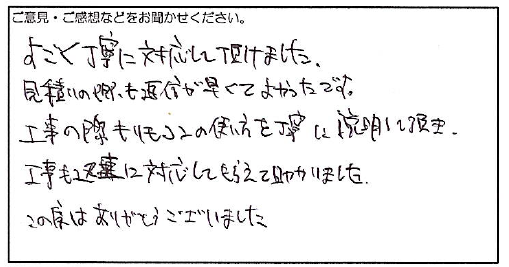 ご意見・ご感想などをお聞かせください。
すごく丁寧に対応して頂けました。
見積りの際も返信が早くてよかったです。
工事の際もリモコンの使い方を丁寧に説明して頂き、
工事も迅速に対応してもらえて助かりました。
この度はありがとうございました